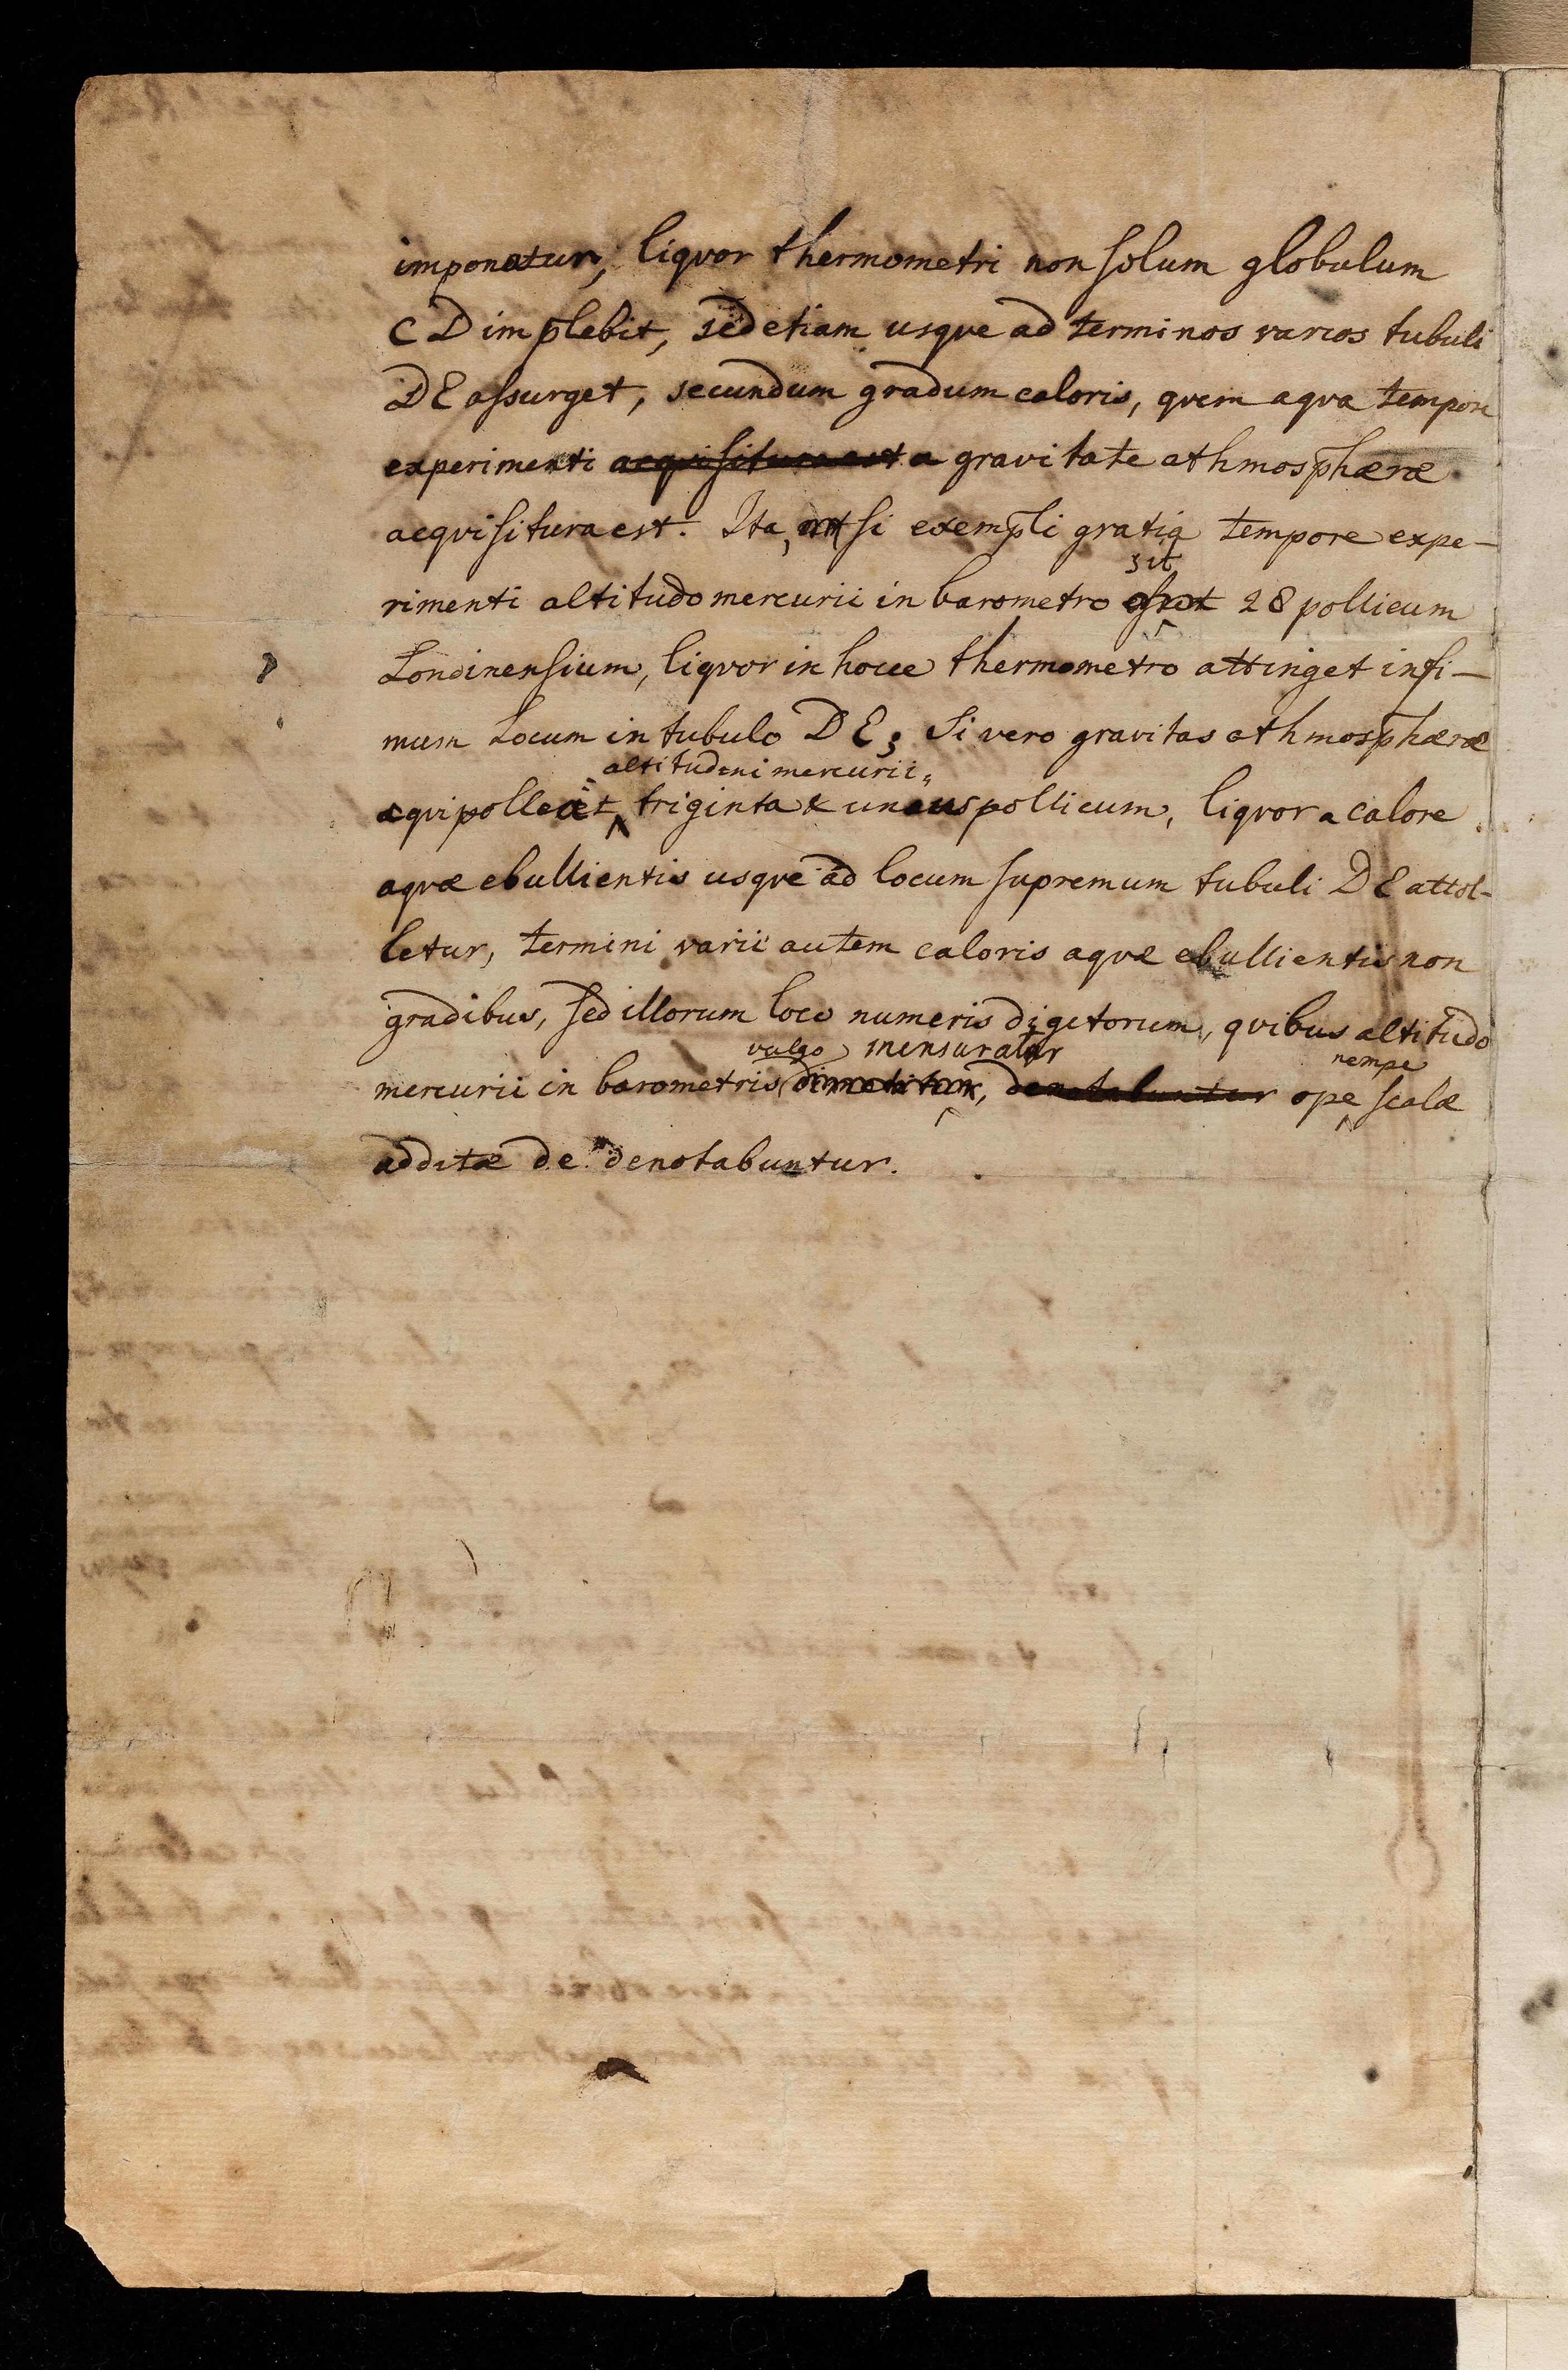 imponatur, liqvor thermometri non solum globulum
CD implebit, sed etiam usqve ad terminos varios tubuli
DE assurget, secundum gradum caloris, qvem aqva tempore
experimenti acqvisitura est a gravitate athmosphæræ
acqvisitura est. Ita, si exempli gratia tempore expe-
sit
rimenti altitudo mercurii in barometro 28 pollicum
Londinensium, liqvor in hocce thermometro attinget infi-
mum Locum in tubulo DE; Si vero gravitas athmosphæræ
altitudini mercurii
æqvipolleat triginta & unius pollicum, liqvor a calore
aqvæ ebullientis usqve ad locum supremum tubuli DE attol-
letur, termini varii autem caloris aqvæ ebullientis non
gradibus, sed illorum loco numeris digitorum, qvibus altitudo
vulgo mensuratur nempe
mercurii in barometris, denotabuntur ope scalæ
additæ de denotabuntur.